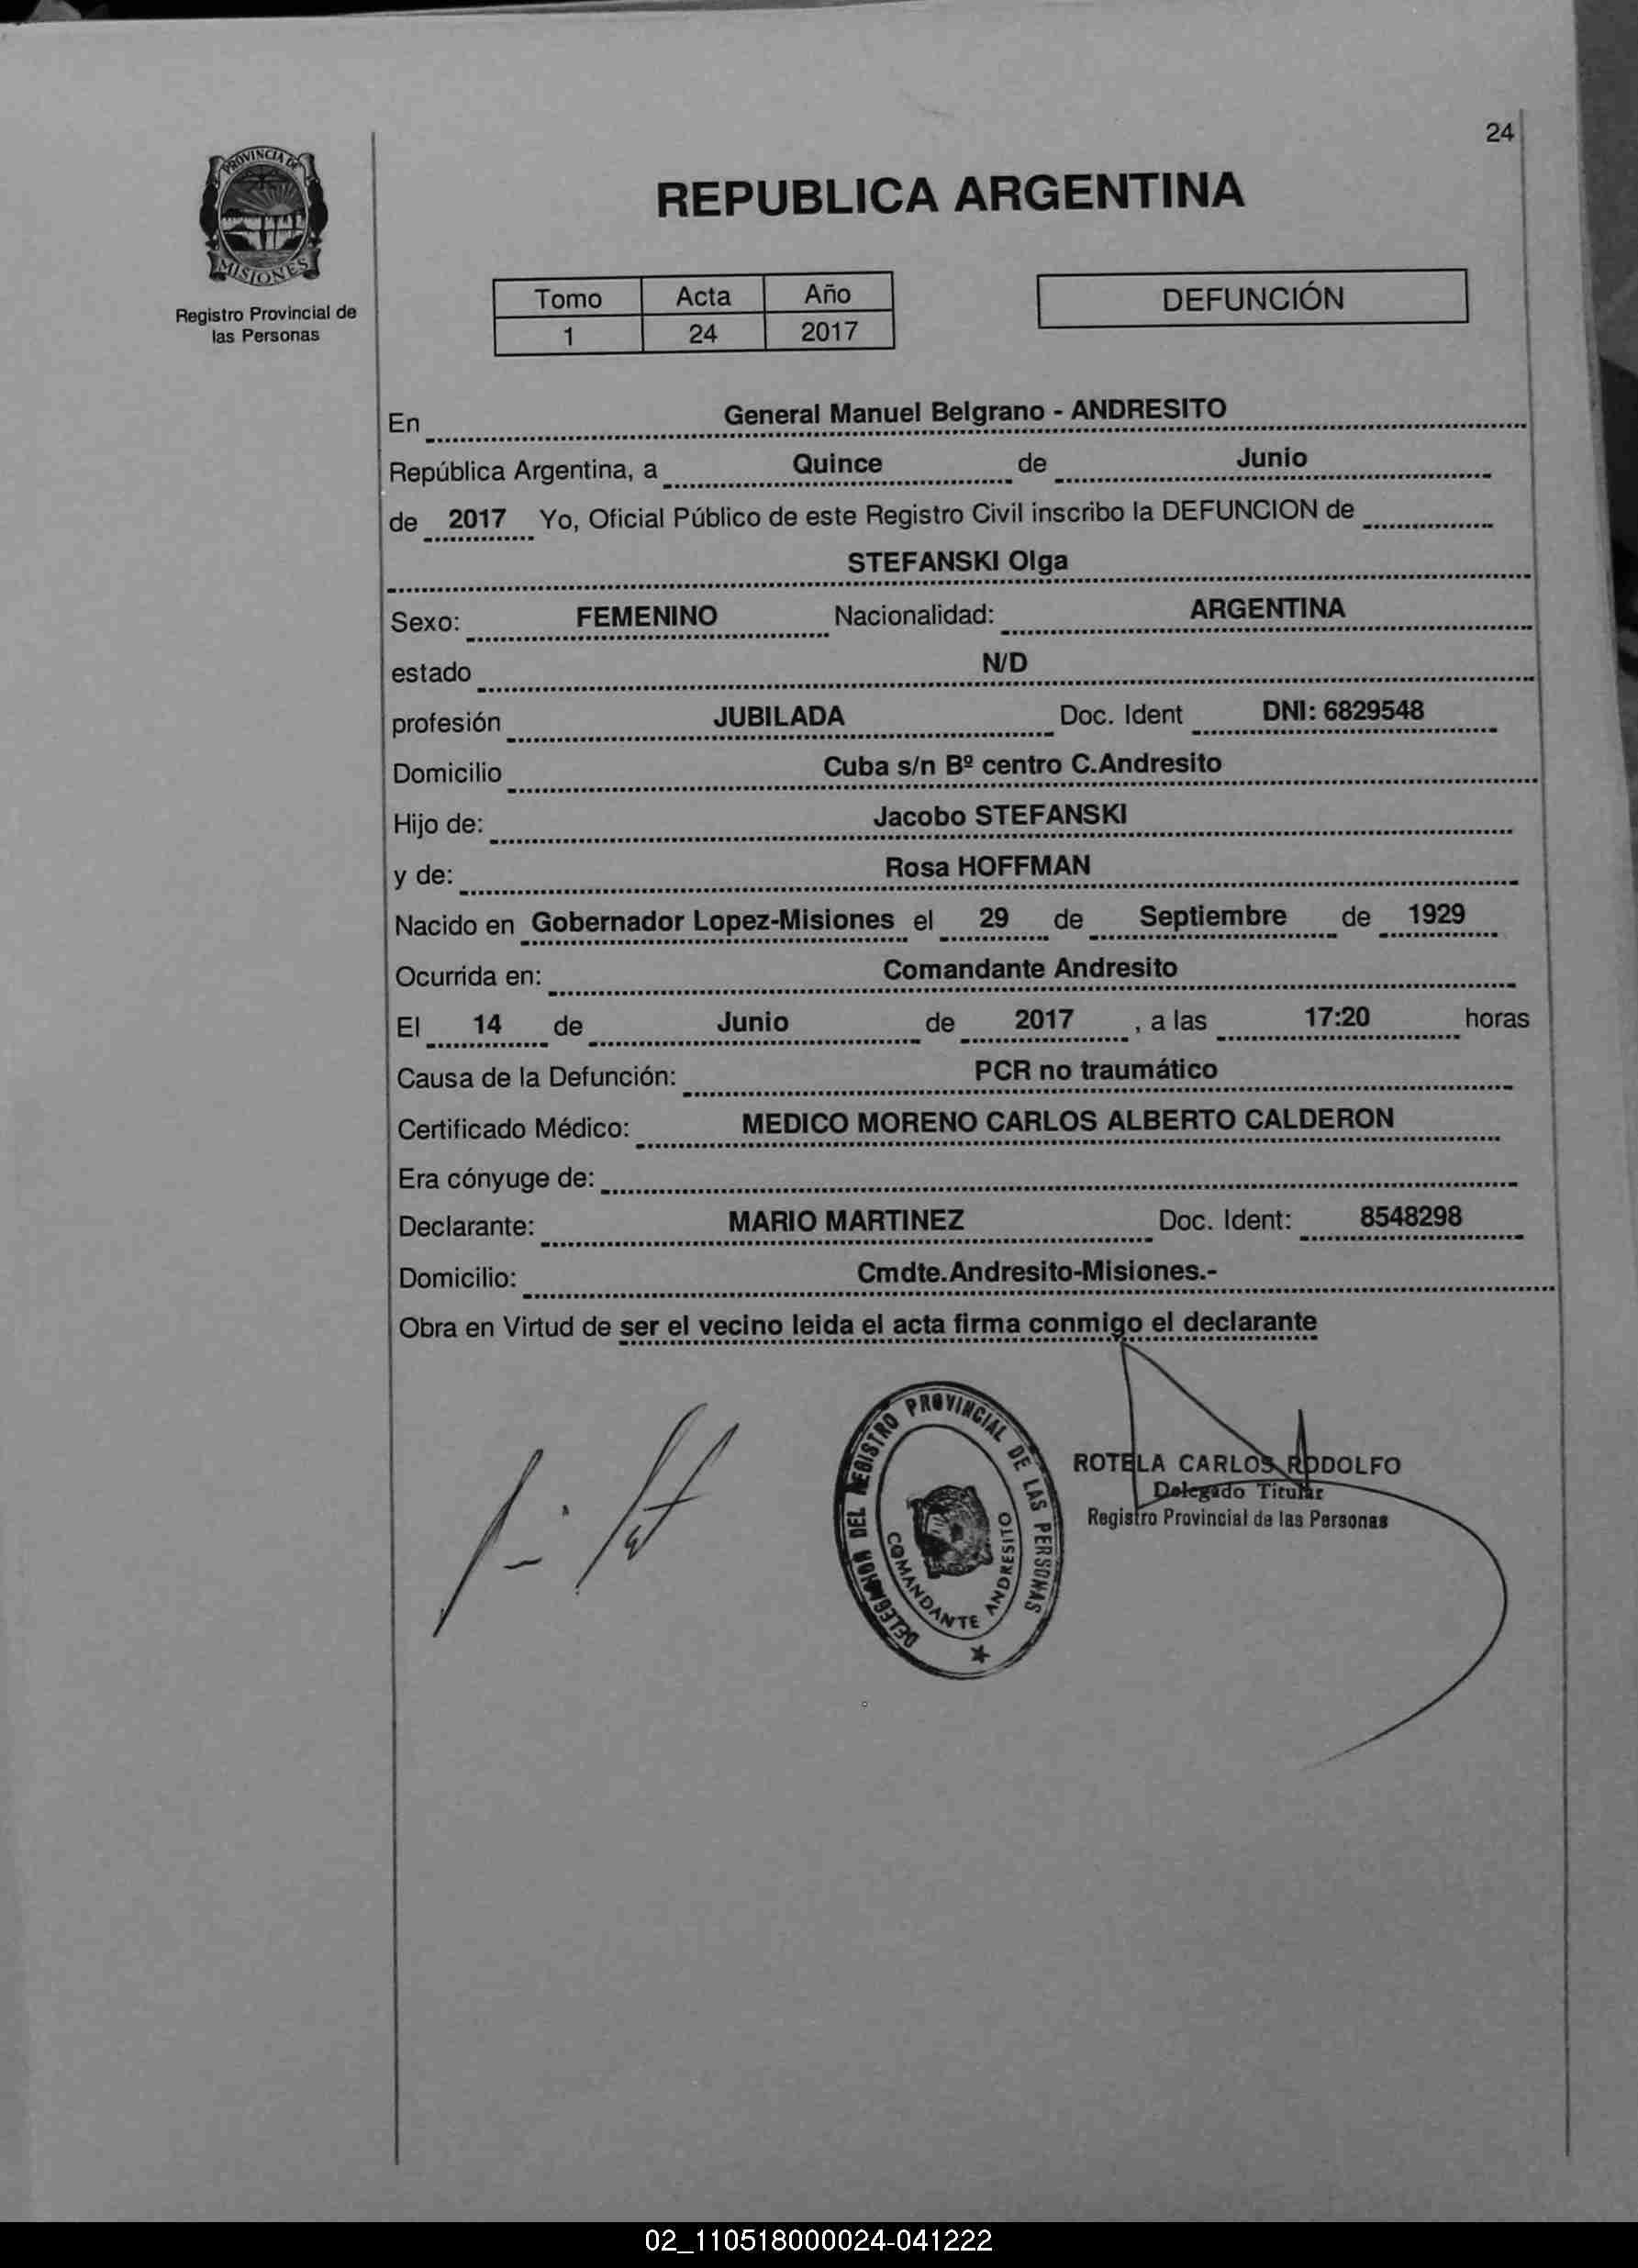 24
PROVINCIA DE
MISIONES
Registro Provincial de
las Personas
REPUBLICA ARGENTINA
Tomo Acta Año
1 24 2017
DEFUNCIÓN
En General Manuel Belgrano - ANDRESITO
República Argentina, a Quince de Junio
de 2017 Yo, Oficial Público de este Registro Civil inscribo la DEFUNCION de
STEFANSKI Olga
Sexo: FEMENINO Nacionalidad: ARGENTINA
estado N/D
profesión JUBILADA Doc. Ident DNI: 6829548
Domicilio Cuba s/n Bº centro C.Andresito
Hijo de: Jacobo STEFANSKI
y de: Rosa HOFFMAN
Nacido en Gobernador Lopez-Misiones el 29 de Septiembre de 1929
Ocurrida en: Comandante Andresito
El 14 de Junio de 2017 , a las 17:20 horas
Causa de la Defunción: PCR no traumático
Certificado Médico: MEDICO MORENO CARLOS ALBERTO CALDERON
Era cónyuge de:
Declarante: MARIO MARTINEZ Doc. Ident: 8548298
Domicilio: Cmdte.Andresito-Misiones.-
Obra en Virtud de ser el vecino leida el acta firma conmigo el declarante
DELEGACION DEL REGISTRO PROVINCIAL DE LAS PERSONAS
COMANDANTE ANDRESITO
ROTELA CARLOS RODOLFO
Delegado Titular
Registro Provincial de las Personas
02_110518000024-041222